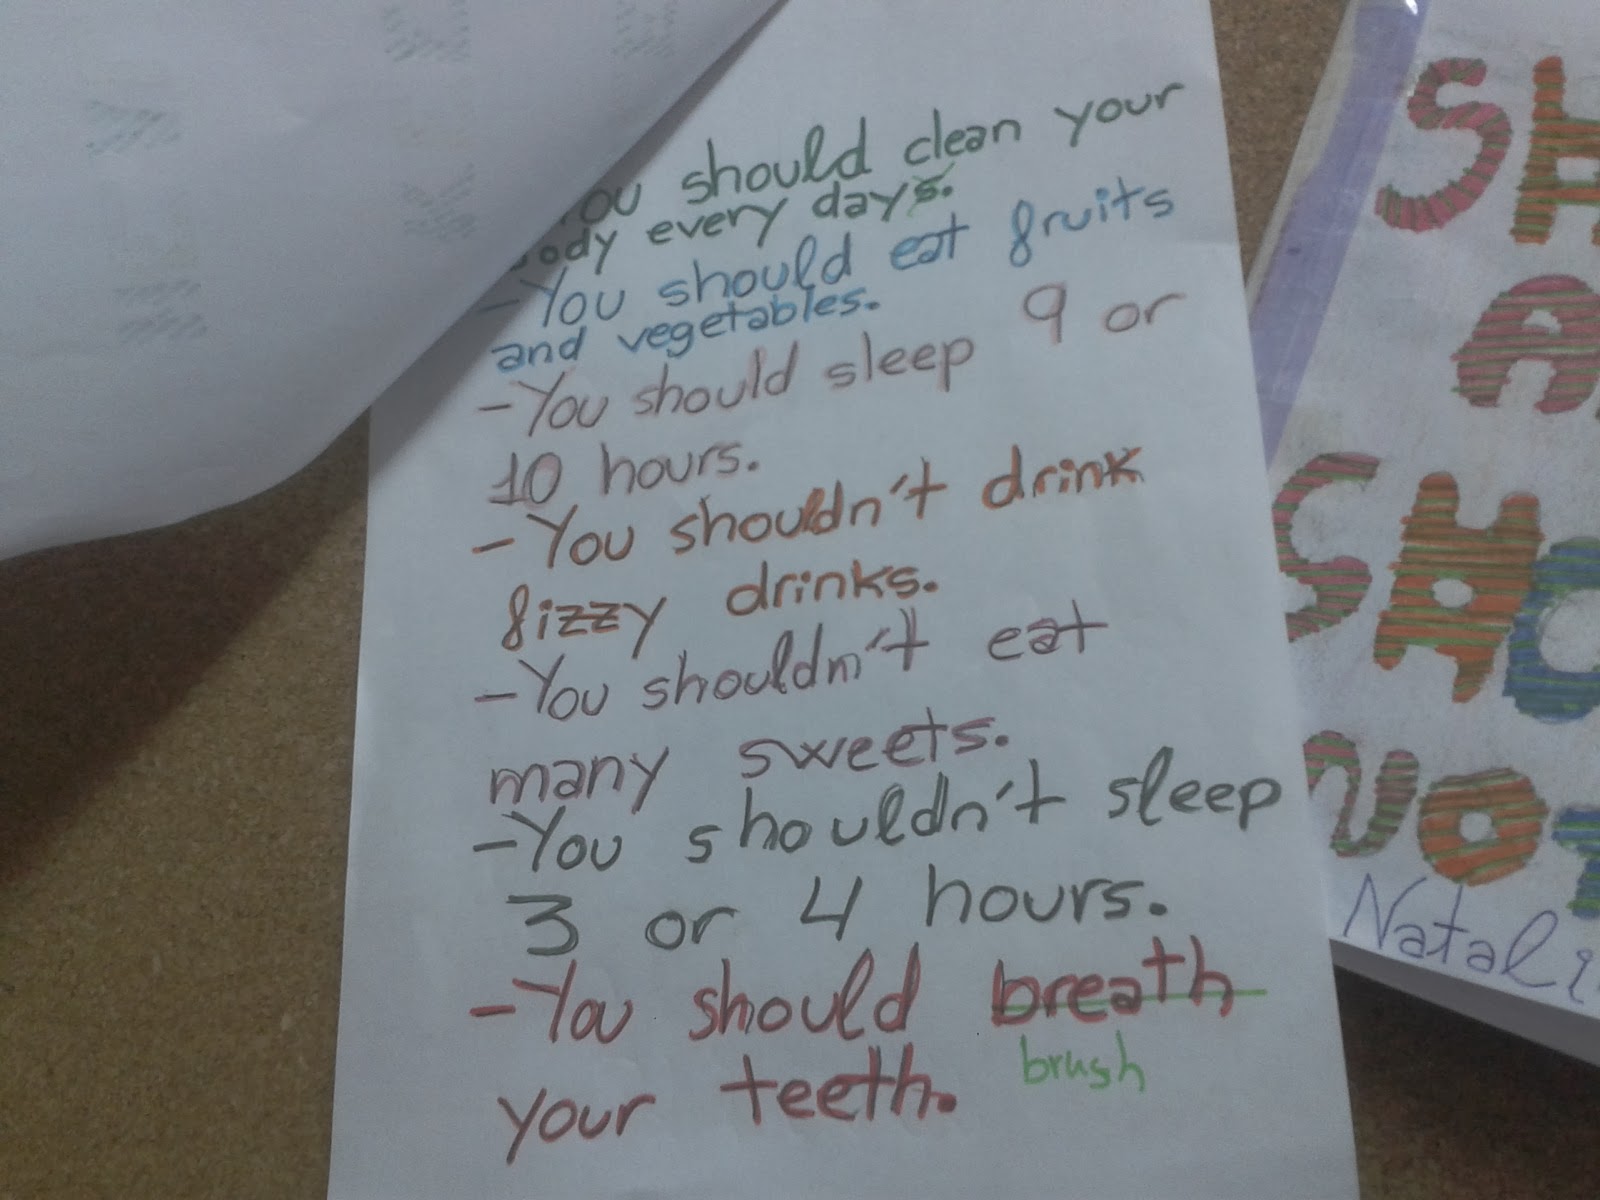 You should clean your
body every days.
-You should eat fruits
and vegetables.
-You should sleep 9 or
10 hours.
-You shouldn't drink
fizzy drinks.
-You shouldn't eat
many sweets.
-You shouldn't sleep
3 or 4 hours.
-You should breath
brush
your teeth.
SH
A
SHO
NOT
Natali